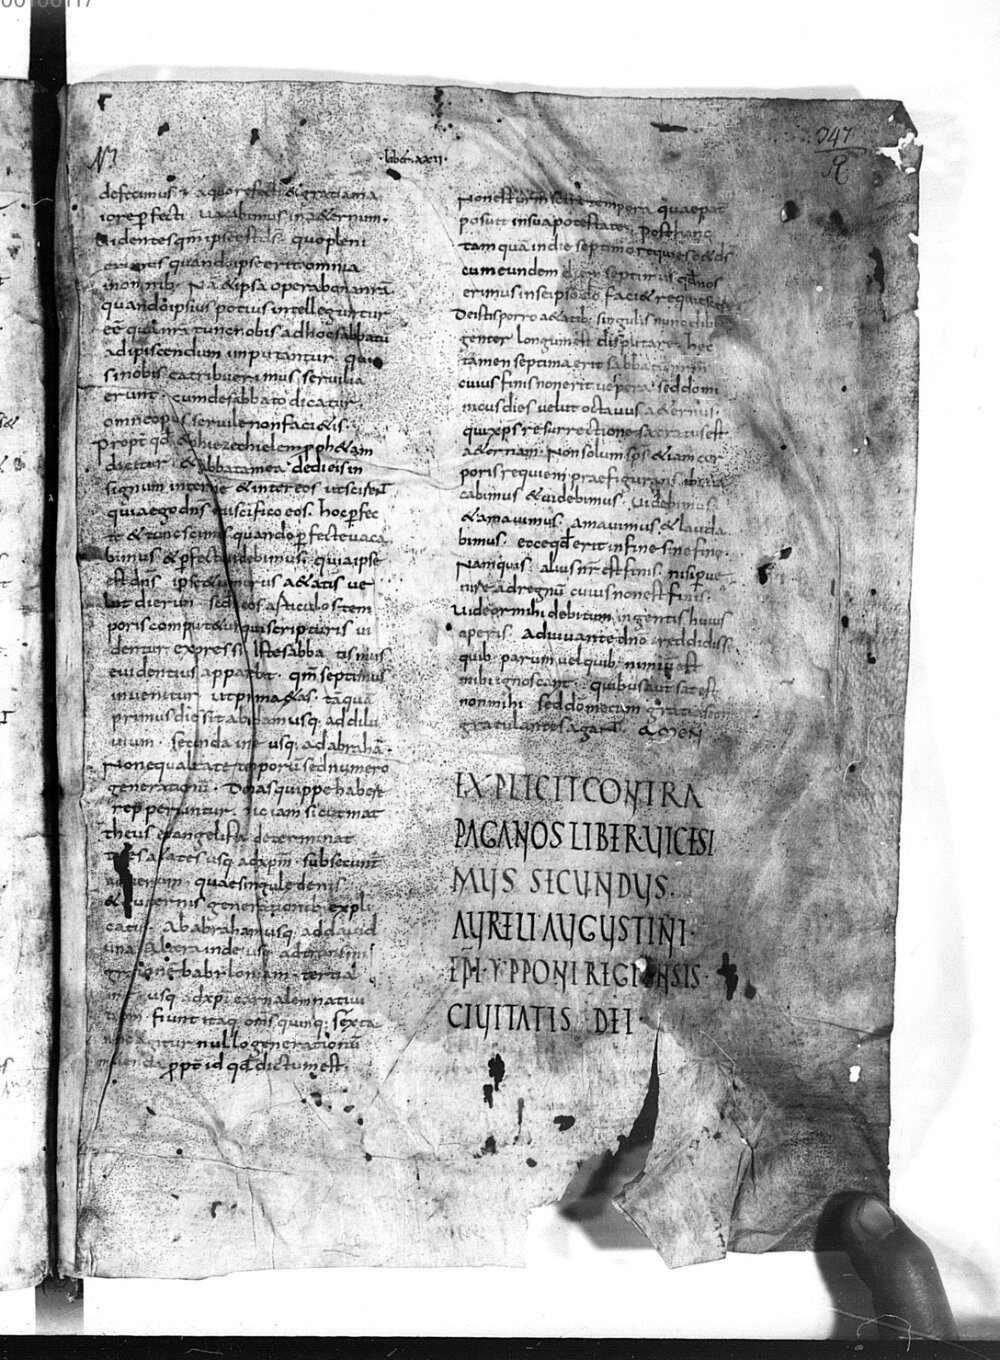 00106117
liber xxii
defecimus & a quo refecti & gratia ma
iore perfecti vacabimus in aeternum
videntes qm ipse est ds quo pleni
erimus quando ipse erit omnia
in omnib; Na & ipsa opera bona nra
quando ipsius potius intelleguntur
eē quā nra tunc nobis ad hoc sabbatū
adipiscendum imputantur quia
si nobis ea tribuerimus servilia
erunt cum de sabbato dicatur
omne opus servile non faci&is
Propt qd & per hiezechielem proph&am
dicitur & sabbata mea dedi eis in
signum inter me & inter eos ut scirent
quia ego dns qui scifico eos hoc perfec
te & tunc sciemus quando perfecte vaca
bimus & perfecte videbimus quia ipse
est dns ipse & numerus a&atis ve
lut dierum sed eos articulos tem
poris comput&ur qui scripturis vi
dentur expressi Iste sabbatismus
evidentius apparebit qm septimus
invenitur ut prima &as tāquā
primus dies sit ab adam usq ad dilu
vium secunda inde usq ad abrahā
Non equalitate temporū sed numero
generationū Denas quippe habere
repperiuntur hic iam sicut mat
theus evangelista determinat
tres a&ates usq ad xpm subsecunt
adventum quae singule denis
& quaternis generationib; expli
cat ab abraham usq ad david
una altera inde usq ad transmi
gratione babiloniam tertia
inde usq ad xpi carnalem nativi
tatem Fiunt itaq omis quinq; sexta
nunc agitur nullo generationū
ppt id qd dictum est
Non est vrm scire tempora quae pat
posuit in sua potestate Post hanc
tam quā in die septimo requiesc& ds
cum eundem diem septimū qd nos
erimus in se ipso do faci& requiescere
De istis porro a&atib; singulis nunc dili
genter longum est disputare hec
tamen septima erit sabbatū nrm
cuius finis non erit vespera sed domi
nicus dies velut octavus aeternus
qui xps resurrectione sacratus est
aeternam Non solum sps & iam cor
poris requiem praefigurans ibi va
cabimus & videbimus Videbimus
& amavimus amavimus & lauda
bimus ecce qd erit in fine sine fine
Nam quis alius nr est finis nisi perve
nire ad regnū cuius non est finis
Videor mihi debitum ingentis huius
operis Adiuvante dno reddidisse
quib; parum vel quib; nimiū est
mihi ignoscant quibus aut sat est
non mihi sed dō mecum gratias con
gratulantes agant AMEN
EXPLICIT CONTRA
PAGANOS LIBER VICESI
MUS SECUNDUS
AURELI AUGUSTINI
EPI YPPONI REGIENSIS
CIVITATIS DEI